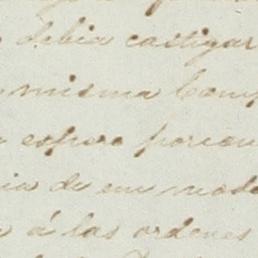 debia castigar
misma Comp
espero porcon
cia de un modo
á las ordenes